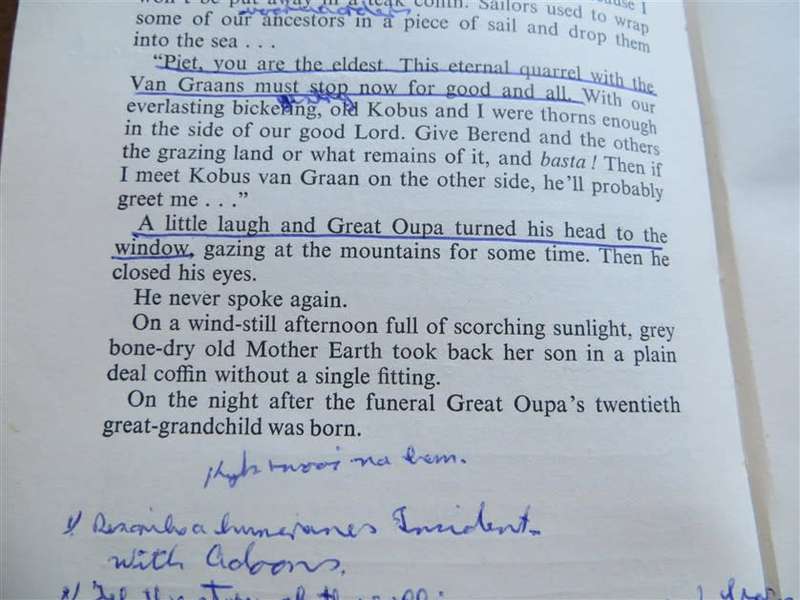 put away in a teak coffin. Sailors used to wrap
some of our ancestors in a piece of sail and drop them
into the sea . . .
“Piet, you are the eldest. This eternal quarrel with the
Van Graans must stop now for good and all. With our
everlasting bickering, old Kobus and I were thorns enough
in the side of our good Lord. Give Berend and the others
the grazing land or what remains of it, and basta! Then if
I meet Kobus van Graan on the other side, he’ll probably
greet me . . .”
A little laugh and Great Oupa turned his head to the
window, gazing at the mountains for some time. Then he
closed his eyes.
He never spoke again.
On a wind-still afternoon full of scorching sunlight, grey
bone-dry old Mother Earth took back her son in a plain
deal coffin without a single fitting.
On the night after the funeral Great Oupa’s twentieth
great-grandchild was born.
mooi na
Incident
with Adoons.